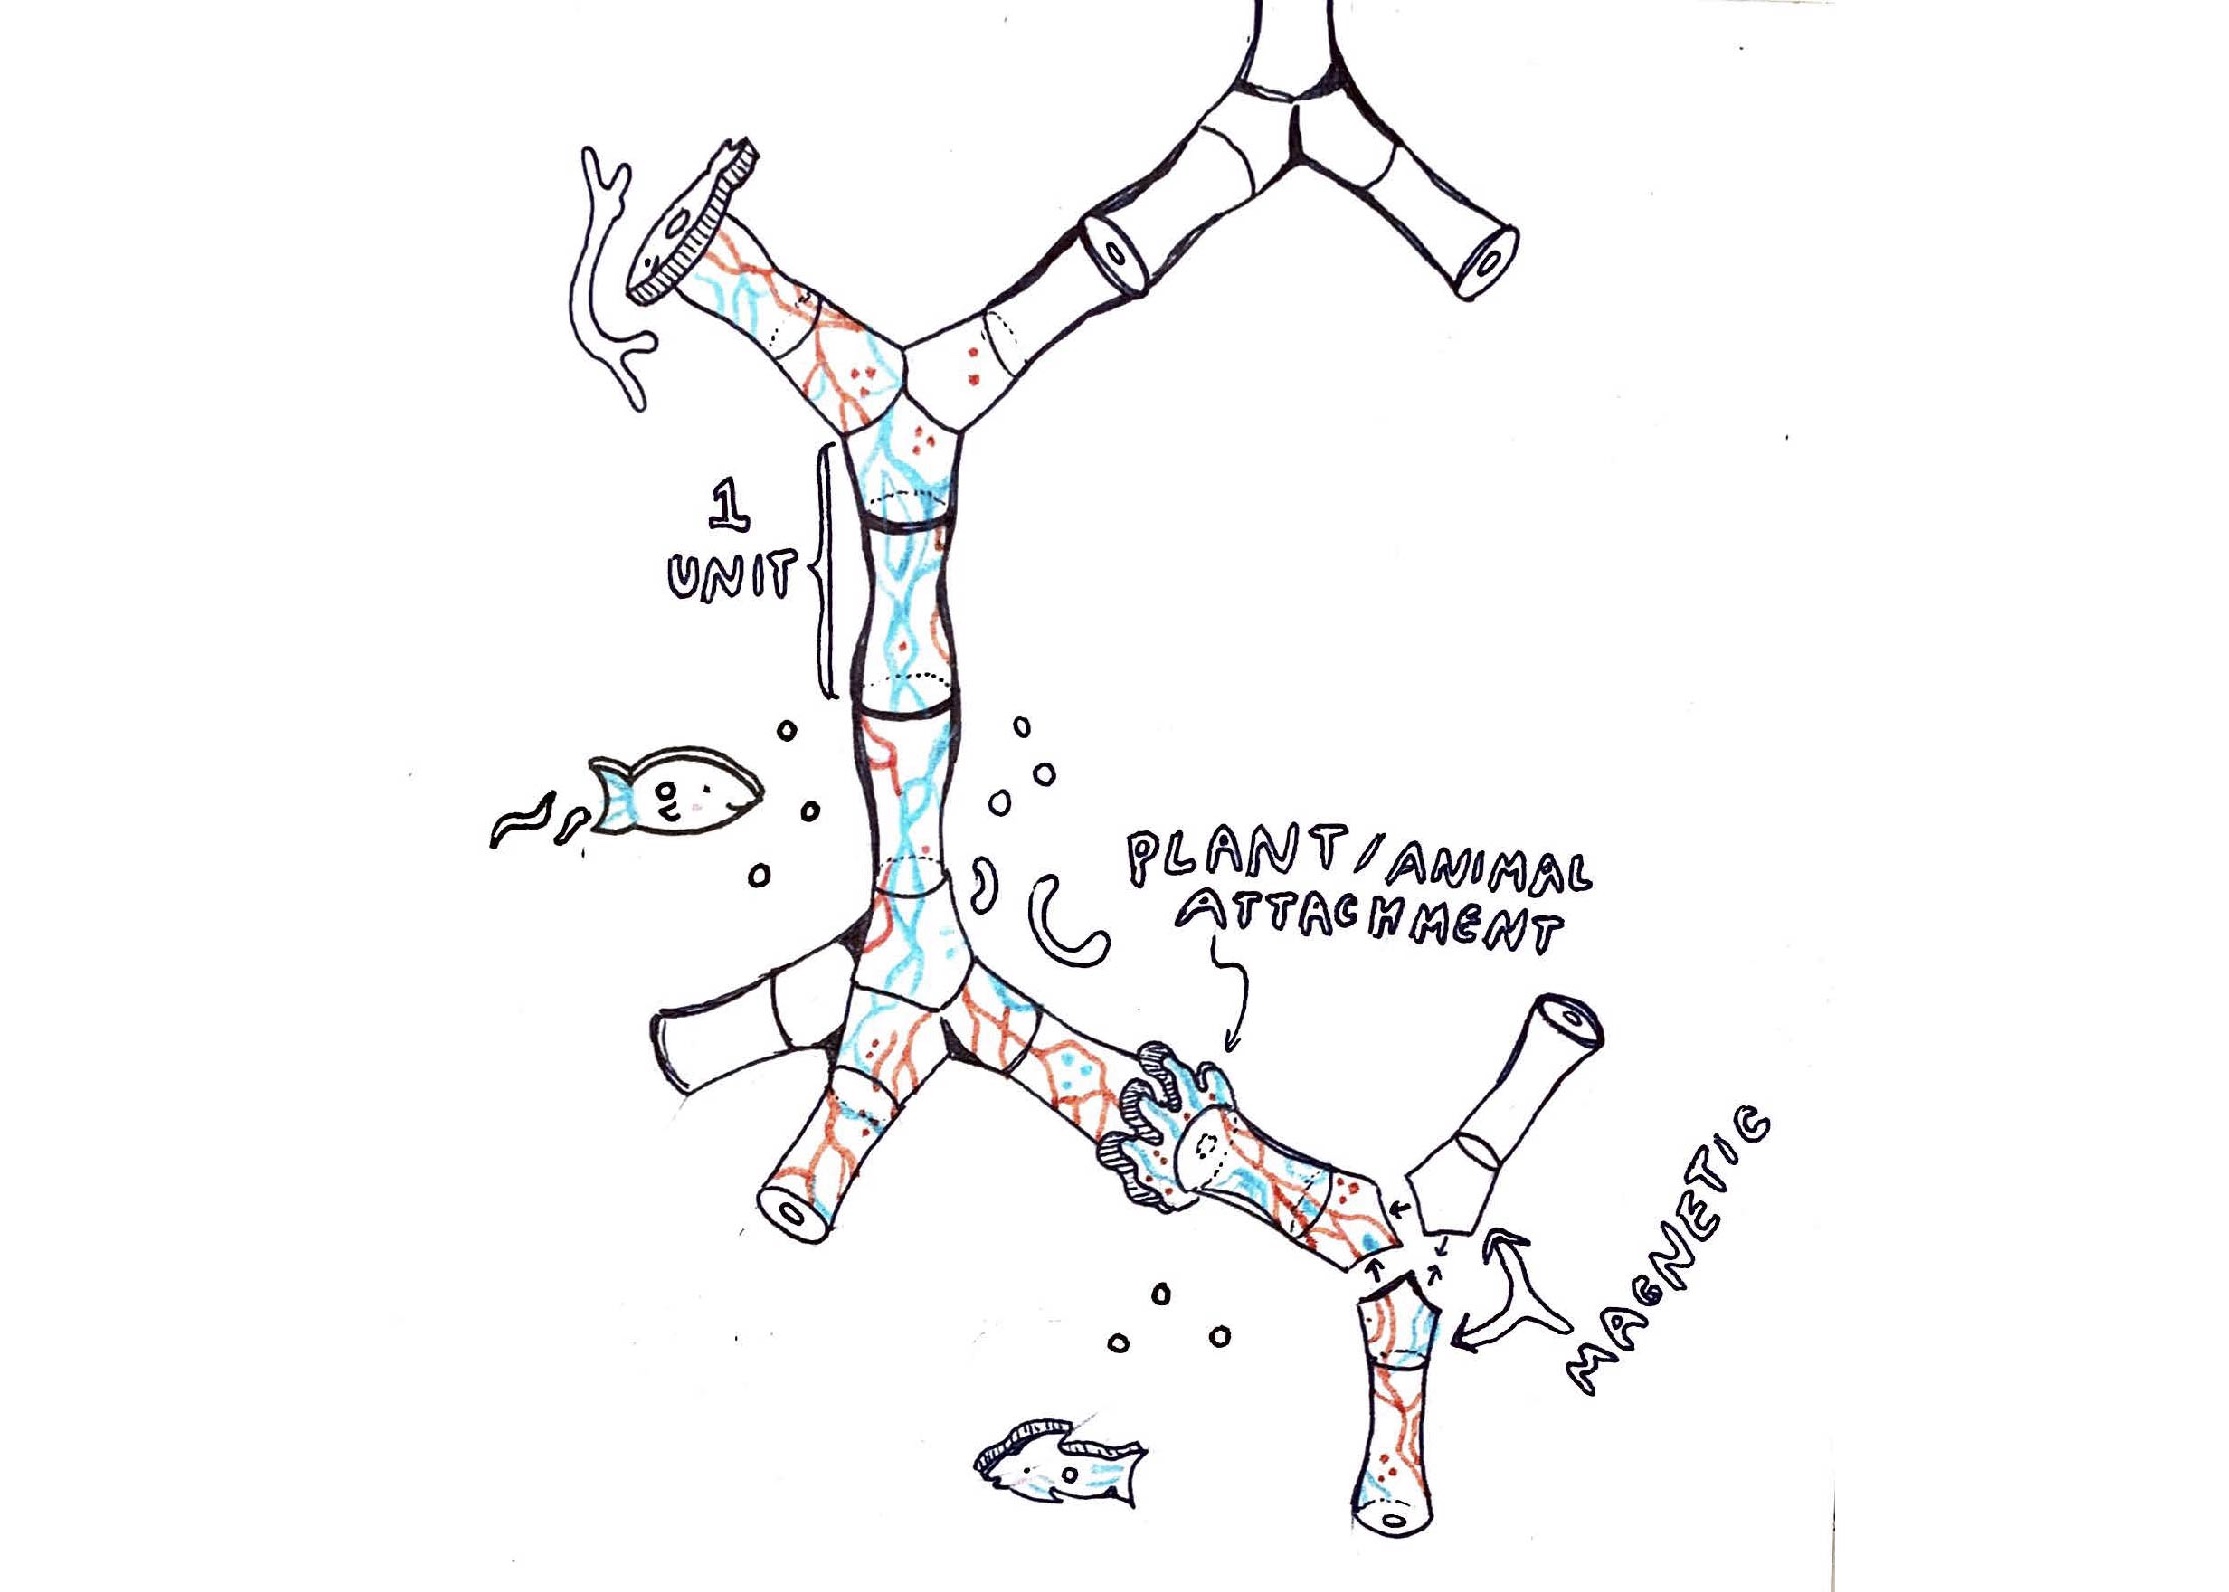 1
UNIT
PLANT/ANIMAL
ATTACHMENT
MAGNETIC